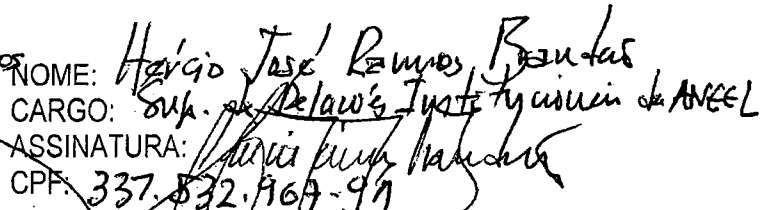 NOME: Hércio José Ramos Brandão
CARGO: Sup. de Relações Institucionais da ANEEL
ASSINATURA:
CPF: